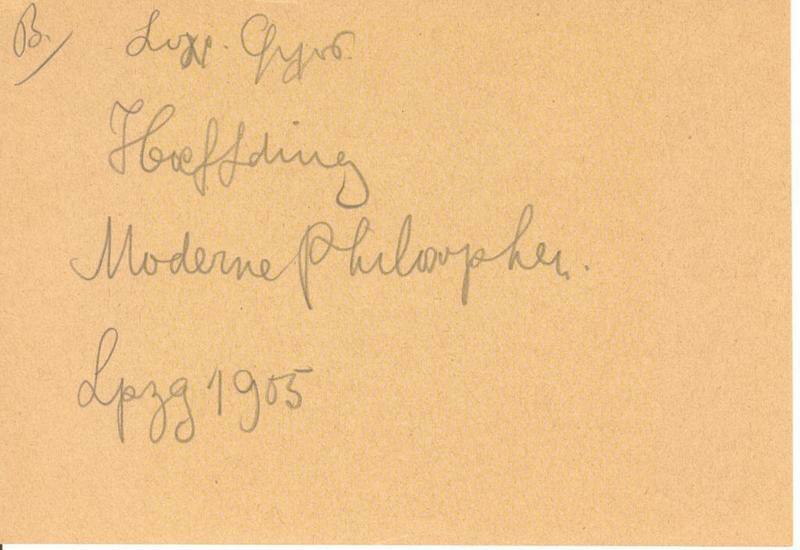 B.
Hoeffding
Moderne Philosophen.
Lpzg 1905